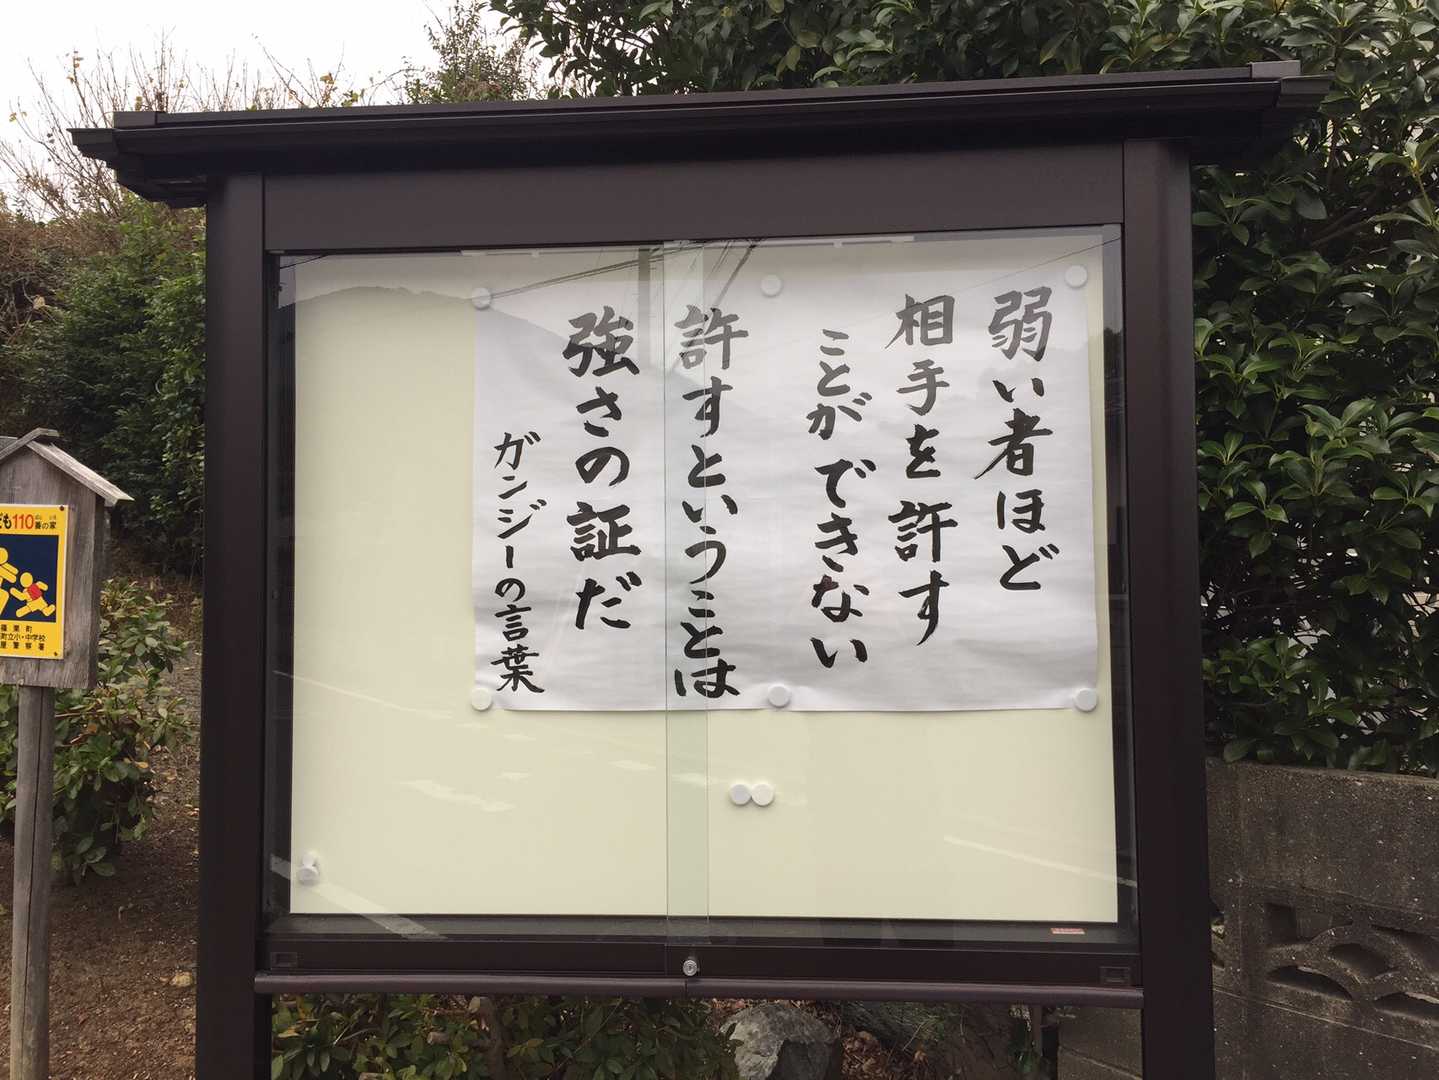 弱い者ほど
相手を許す
ことができない
許すということは
強さの証だ
ガンジーの言葉
ども110番の家
篠栗町
町立小・中学校
屋警察署